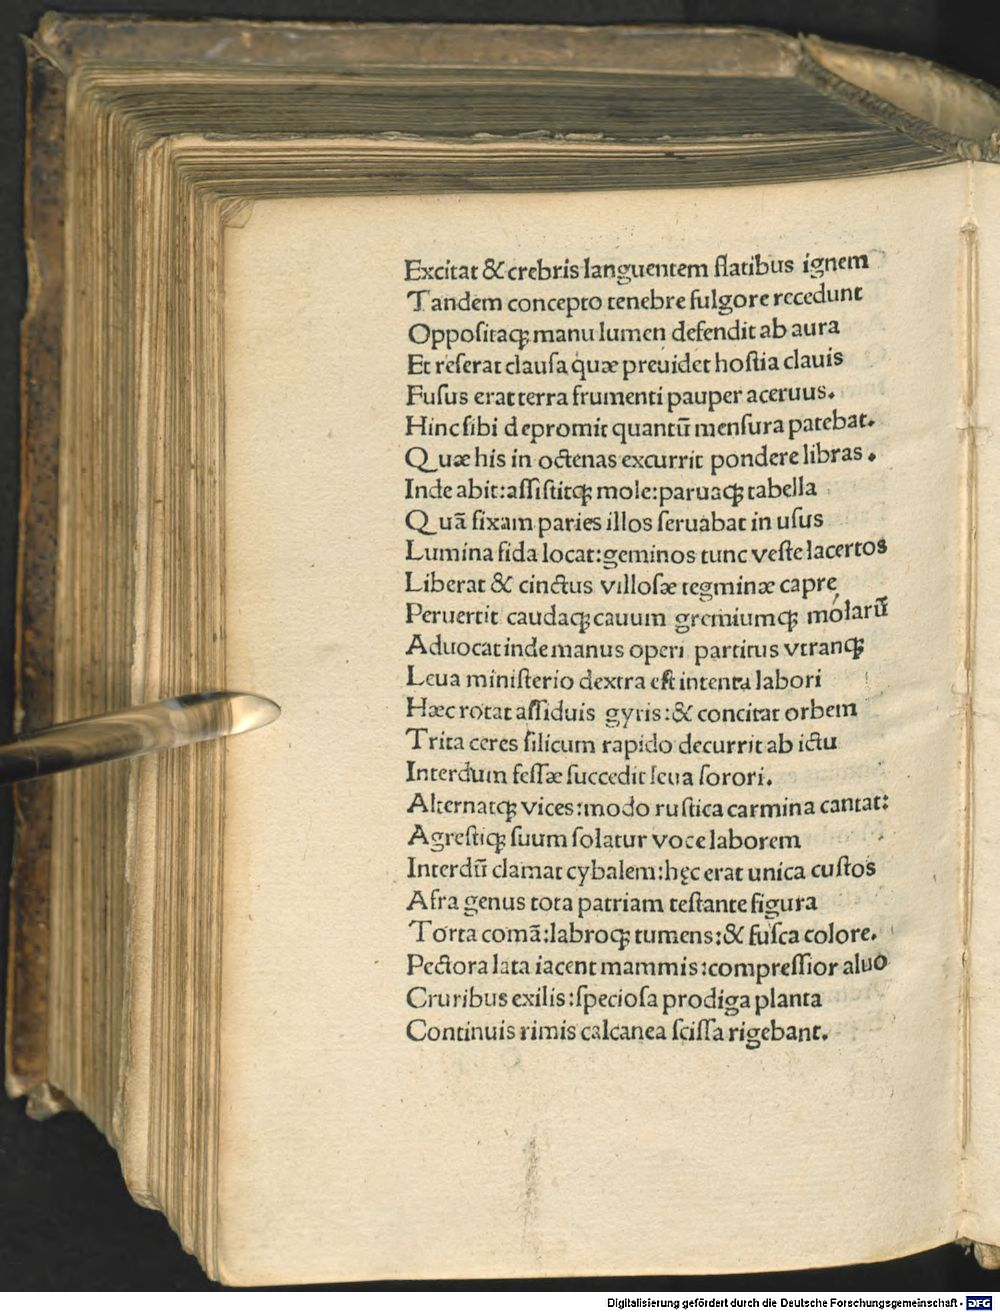 Excitat & crebris languentem flatibus ignem
Tandem concepto tenebre fulgore recedunt
Oppoſitaqꝫ manu lumen defendit ab aura
Et reſerat clauſa quæ preuidet hoſtia clauis
Fuſus erat terra frumenti pauper aceruus.
Hinc ſibi depromit quantū menſura patebat.
Quæ his in octenas excurrit pondere libras.
Inde abit:aſſiſtitqꝫ mole:paruaqꝫ tabella
Quā fixam paries illos ſeruabat in uſus
Lumina fida locat:geminos tunc veſte lacertos
Liberat & cinctus villoſæ tegminæ caprę
Peruertit caudaqꝫ cauum gremiumqꝫ molarū
Aduocat inde manus operi partitus vtranqꝫ
Leua miniſterio dextra eſt intenta labori
Hæc rotat aſſiduis gyris:& concitat orbem
Trita ceres ſilicum rapido decurrit ab ictu
Interdum feſſæ ſuccedit leua ſorori.
Alternatqꝫ vices:modo ruſtica carmina cantat:
Agreſtiqꝫ ſuum ſolatur voce laborem
Interdū clamat cybalem:hęc erat unica cuſtos
Afra genus tota patriam teſtante figura
Torta comā:labroqꝫ tumens:& fuſca colore.
Pectora lata iacent mammis:compreſſior aluo
Cruribus exilis:ſpecioſa prodiga planta
Continuis rimis calcanea ſciſſa rigebant.
Digitalisierung gefördert durch die Deutsche Forschungsgemeinschaft - DFG